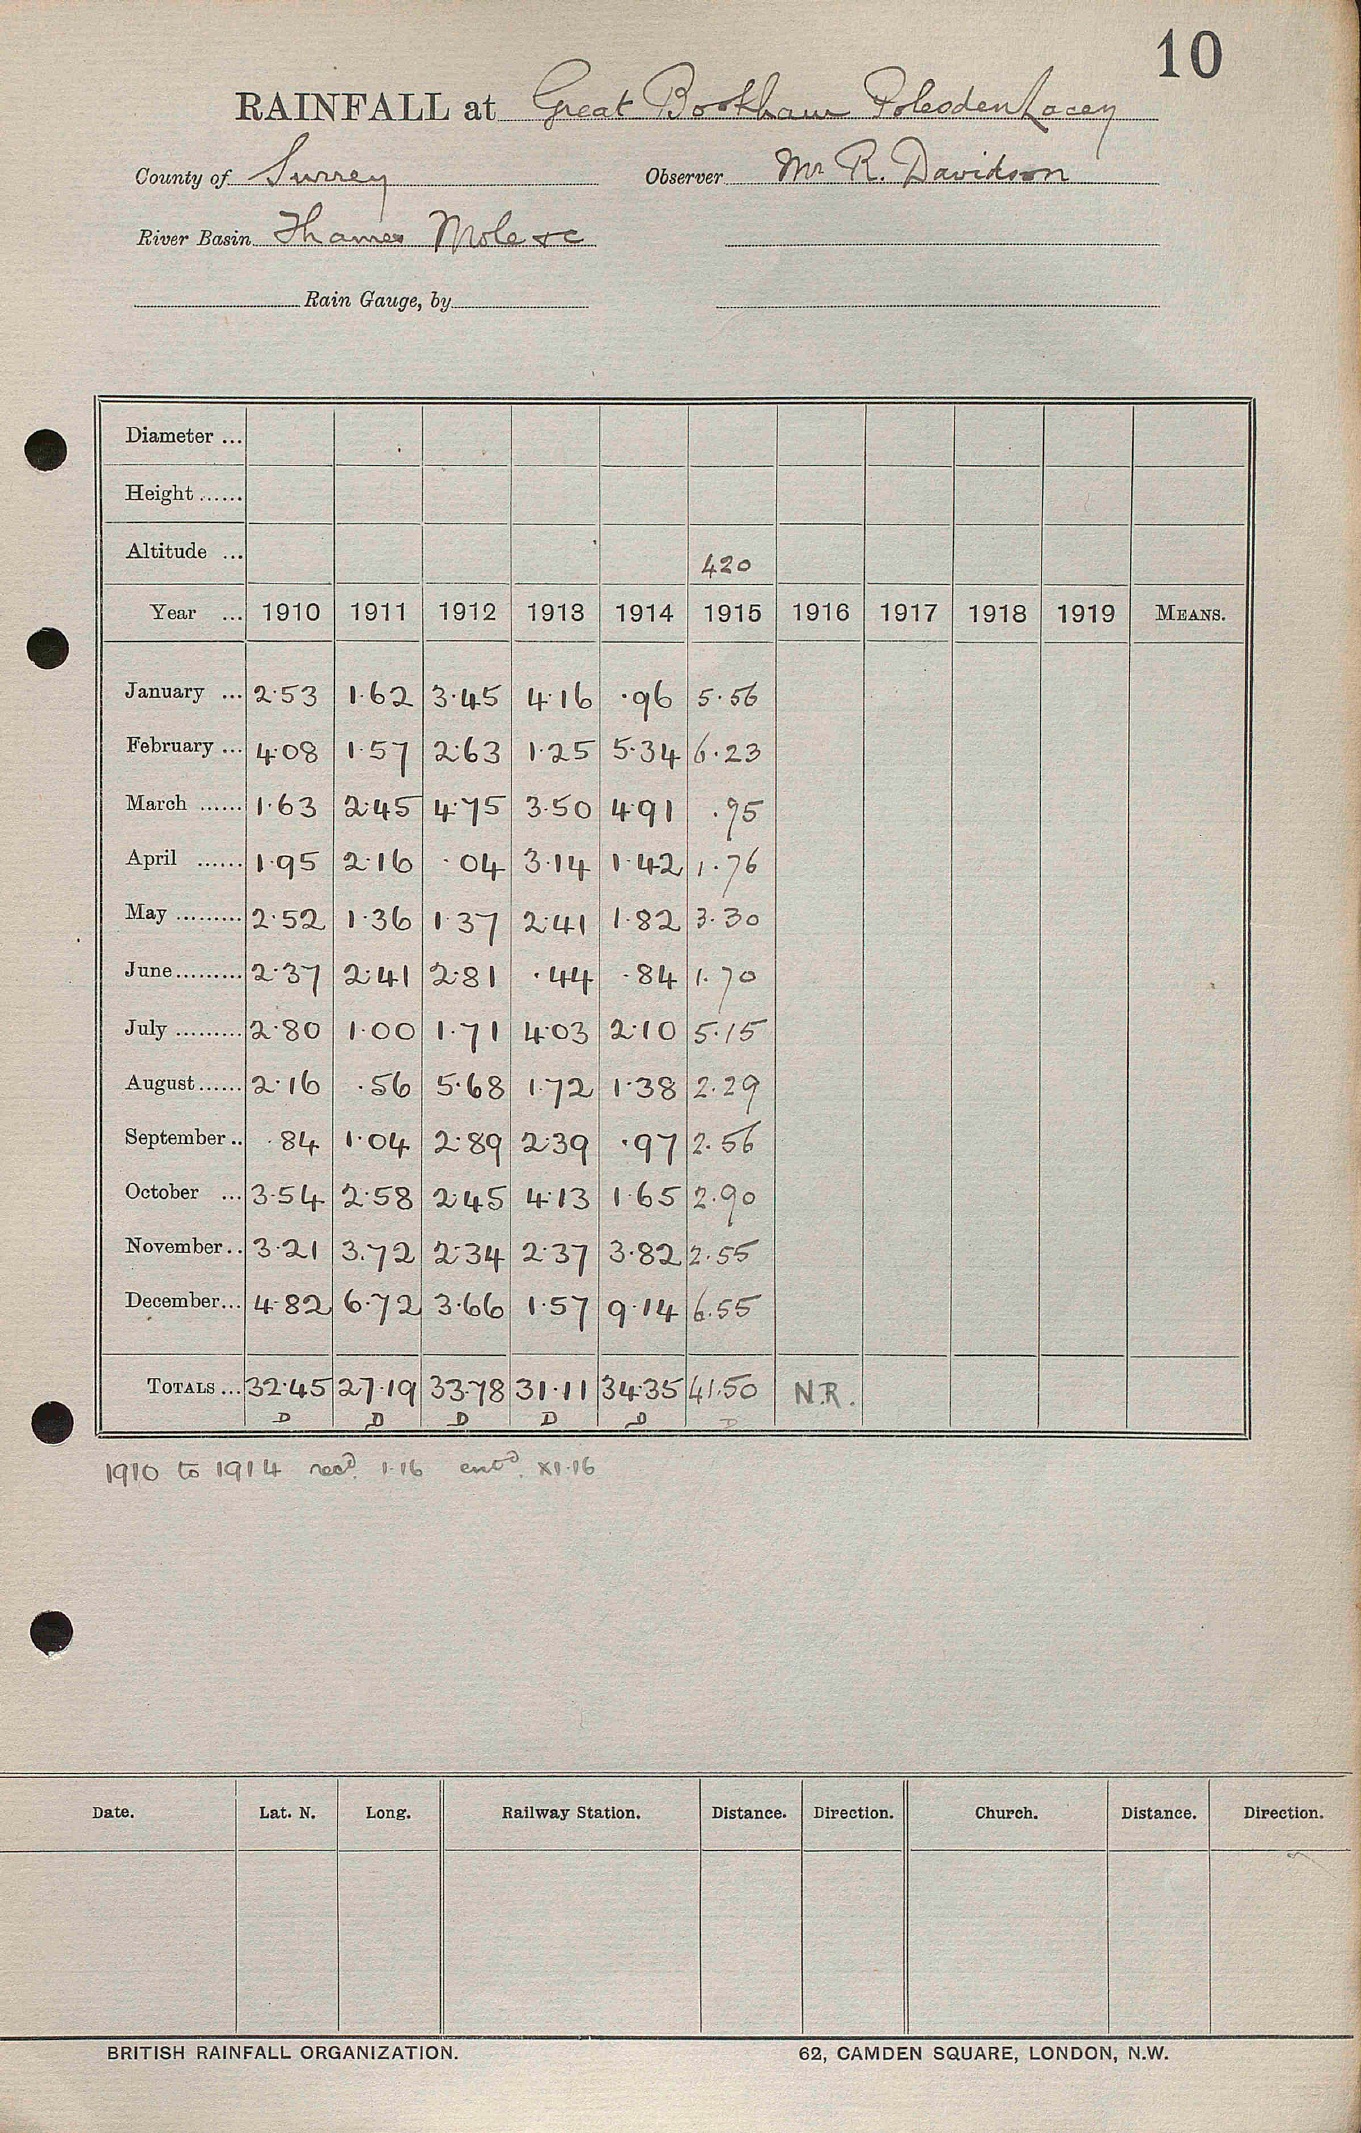 10
RAINFALL at Great Bookham Polesden Lacey
County of Surrey Observer Mr R. Davidson
River Basin Thames Mole &c
Rain Gauge, by
Diameter ...
Height ......
Altitude ... 420
Year ... 1910 1911 1912 1913 1914 1915 1916 1917 1918 1919 MEANS.
January ... 2.53 1.62 3.45 4.16 .96 5.56
February ... 4.08 1.57 2.63 1.25 5.34 6.23
March ...... 1.63 2.45 4.75 3.50 4.91 .95
April ...... 1.95 2.16 .04 3.14 1.42 1.76
May ......... 2.52 1.36 1.37 2.41 1.82 3.30
June ......... 2.37 2.41 2.81 .44 .84 1.70
July ......... 2.80 1.00 1.71 4.03 2.10 5.15
August ...... 2.16 .56 5.68 1.72 1.38 2.29
September .. .84 1.04 2.89 2.39 .97 2.56
October ... 3.54 2.58 2.45 4.13 1.65 2.90
November .. 3.21 3.72 2.34 2.37 3.82 2.55
December ... 4.82 6.72 3.66 1.57 9.14 6.55
TOTALS ... 32.45 27.19 33.78 31.11 34.35 41.50 N.R.
D D D D D D
1910 to 1914 recd. 1.16 entd. XI.16
Date. Lat. N. Long. Railway Station. Distance. Direction. Church. Distance. Direction.
BRITISH RAINFALL ORGANIZATION. 62, CAMDEN SQUARE, LONDON, N.W.